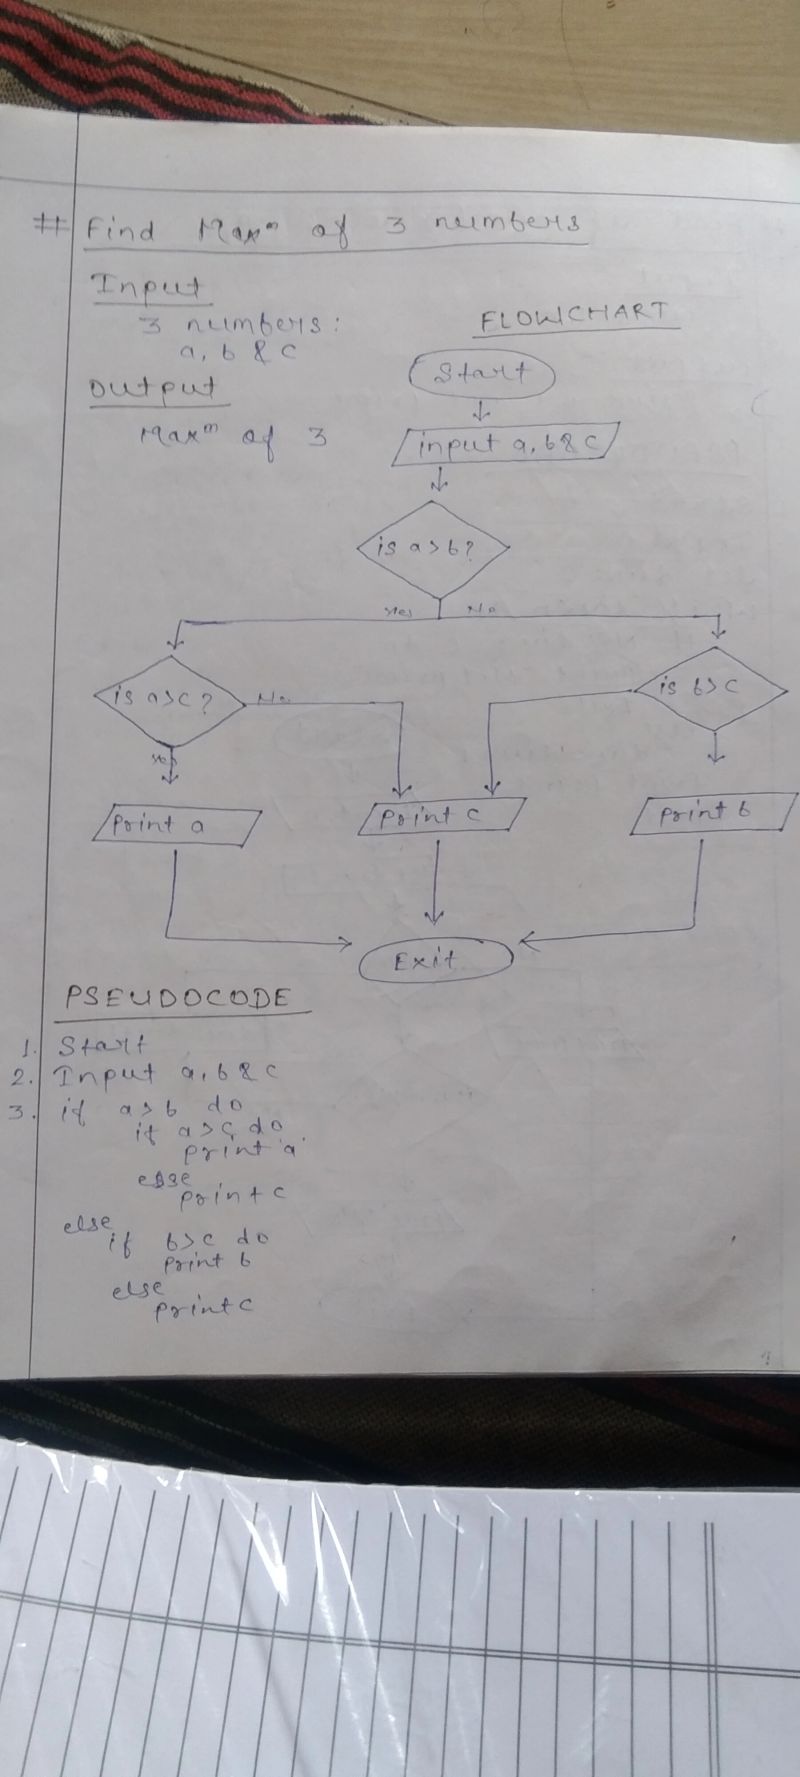 # Find Maxᵐ of 3 numbers
Input
3 numbers:
a, b & c
Output
Maxᵐ of 3
FLOWCHART
Start
input a, b & c
is a > b?
Yes No
is a > c?
No
Yes
is b > c
Print a
Print c
Print b
Exit
PSEUDOCODE
1. Start
2. Input a, b & c
3. if a > b do
if a > c, do
print a
else
print c
else
if b > c do
print b
else
print c